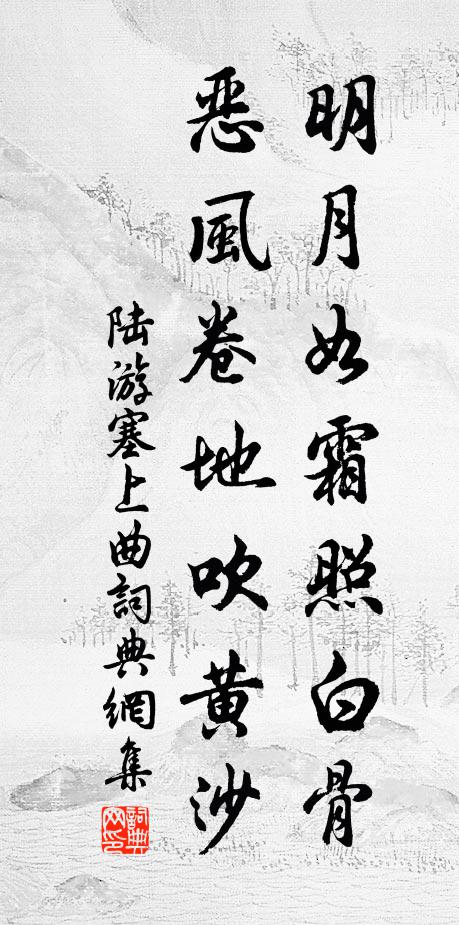 明月如霜照白骨
恶風卷地吹黄沙
陆游塞上曲詞典網集
詞典網印